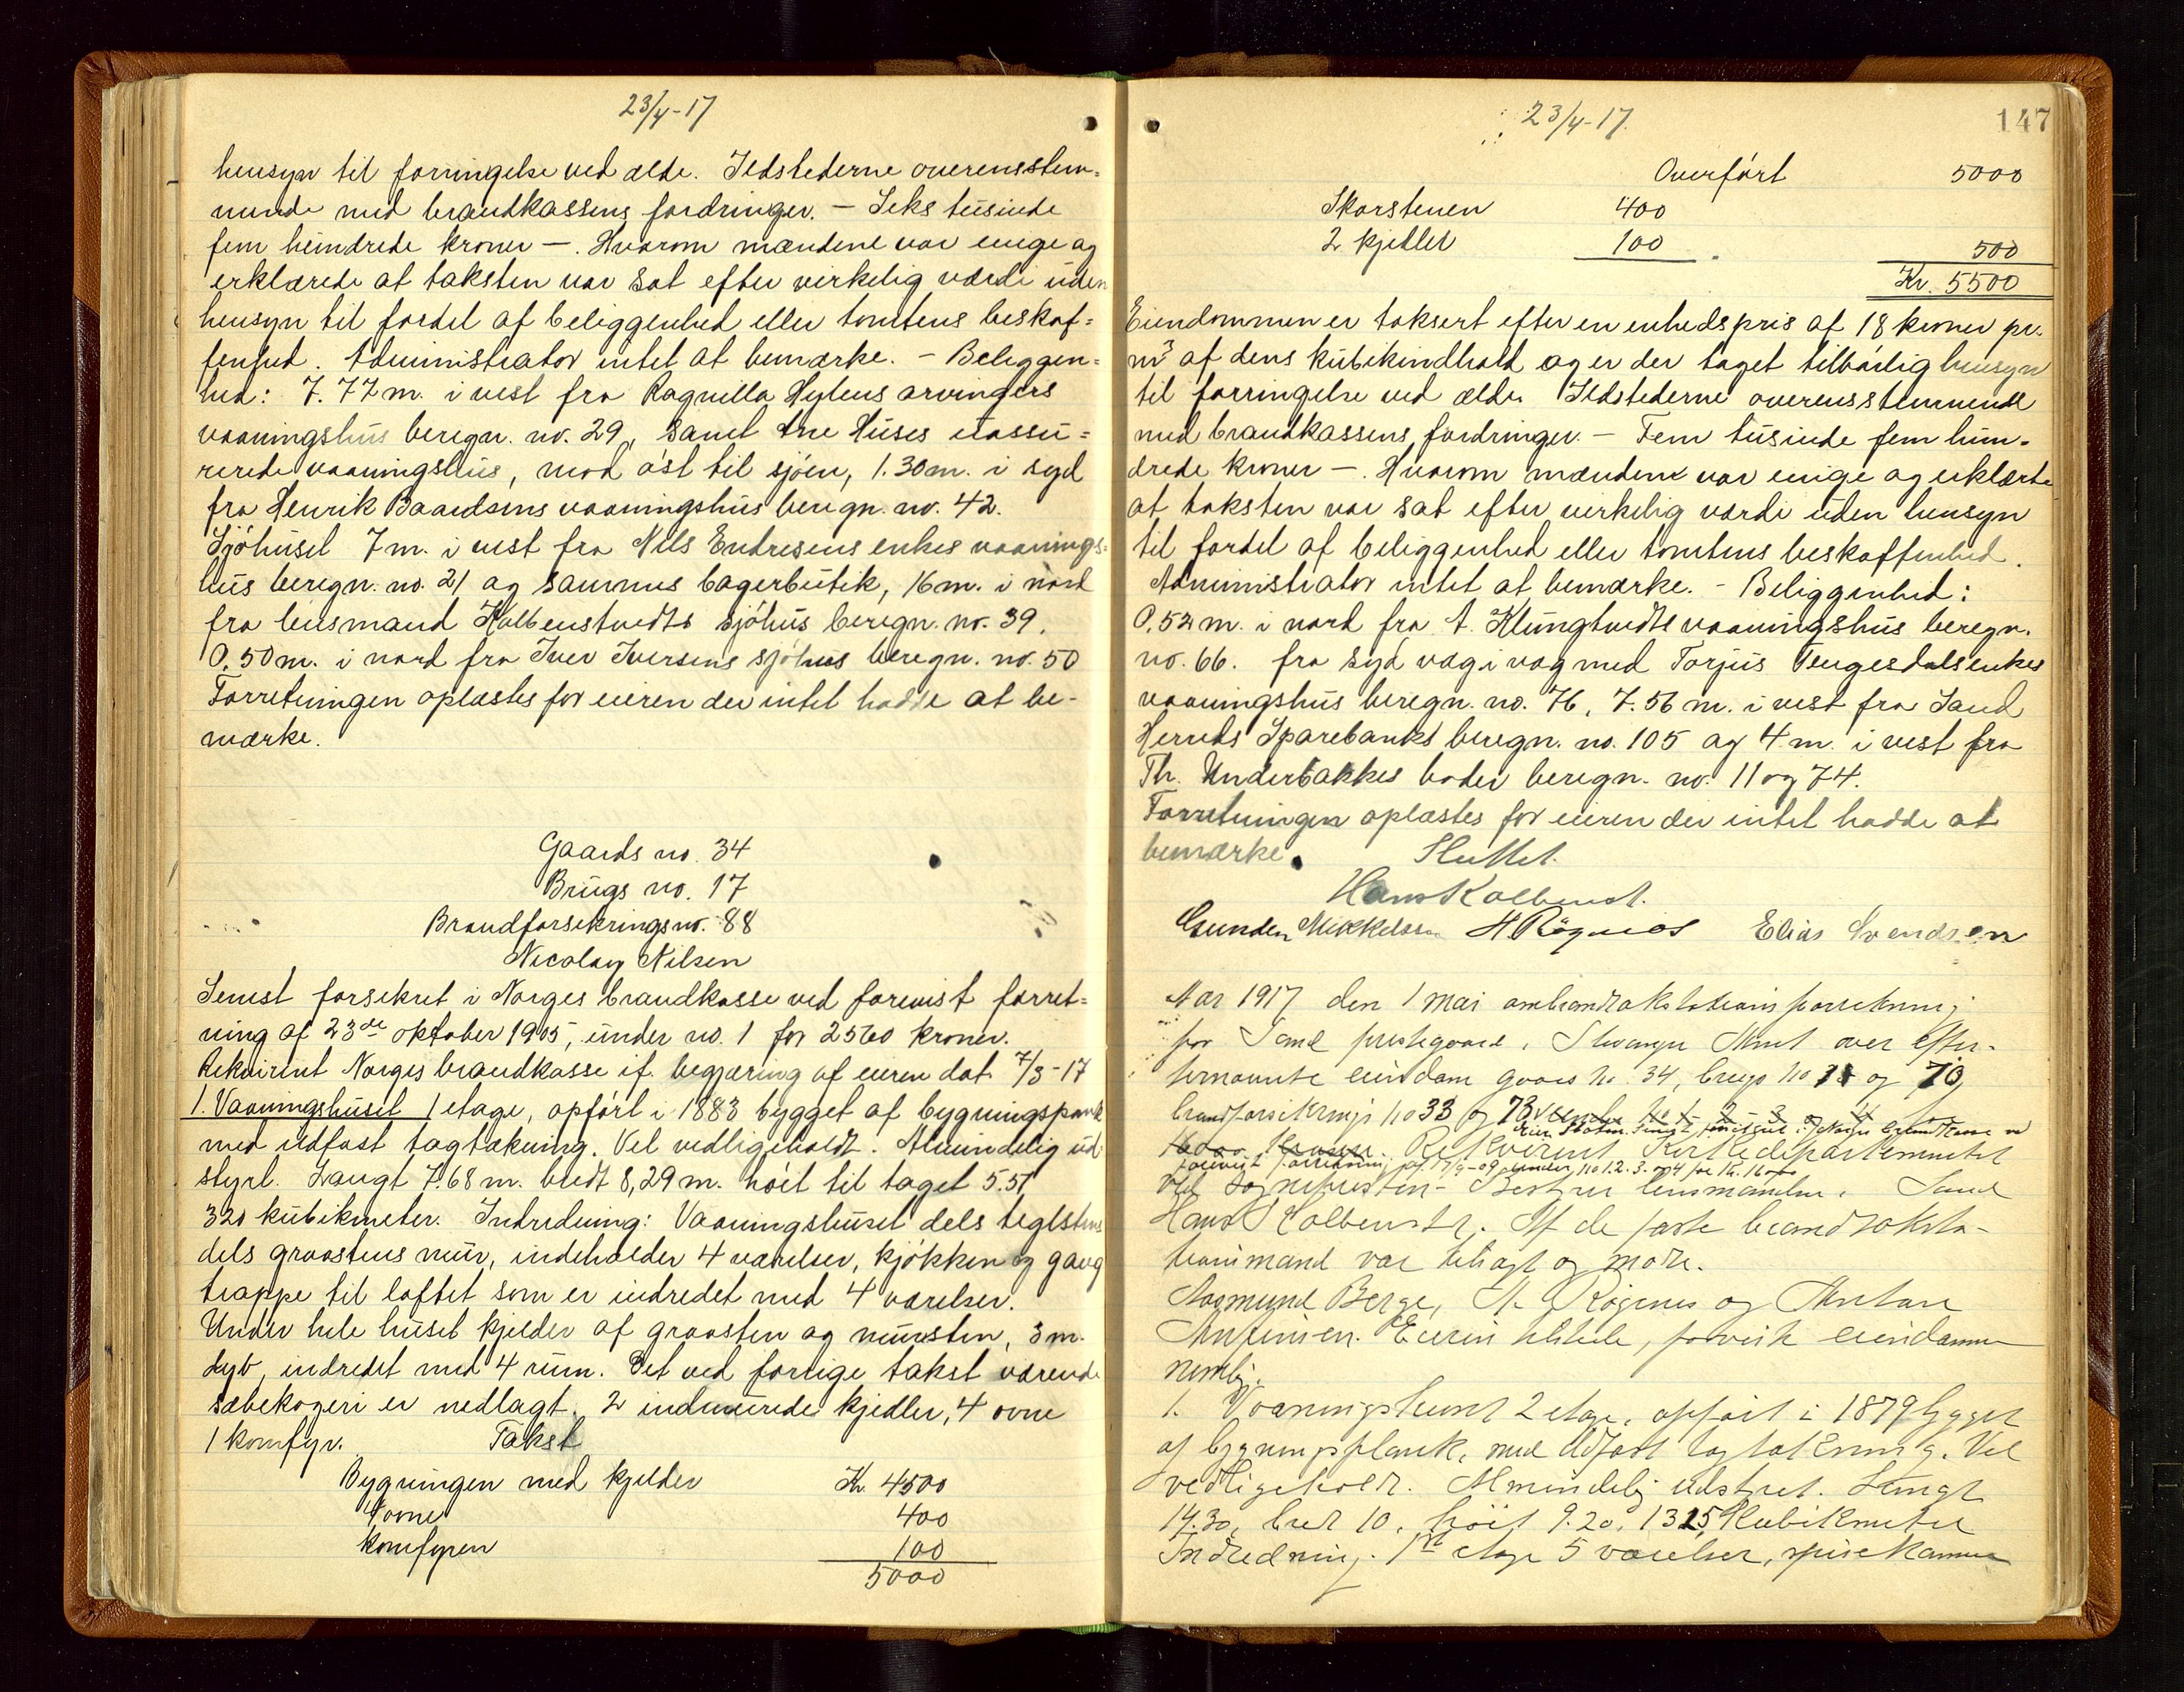 23/4-17
hensyn til forringelse ved ælde. Ildstederne overensstem-
mende med brandkassens fordringer. — Seks tusinde
fem hundrede kroner —. Hvorom mændene var enige og
erklærede at taksten var sat efter virkelig værdi uden
hensyn til fordel af beliggenhed eller tomtens beskaf-
fenhed. Administrator intet at bemærke. - Beliggen-
hed: 7.72 m. i vest fra Ragnilla Hylens arvingers
vaaningshus beregn. no. 29, samt Ane Huses uassu-
rerede vaaningshus, mod øst til sjøen, 1.30 m. i syd
fra Henrik Baardsens vaaningshus beregn. no. 42.
Sjøhuset 7 m. i vest fra Nils Endresens enkes vaanings-
hus beregn. no. 21 og sammes bagerbutik, 16 m. i nord
fra lensmand Kolbenstvedts sjøhus beregn. no. 39.
0,50 m. i nord fra Iver Iversens sjøhus beregn. no. 50
Forretningen oplæstes for eieren der intet hadde at be-
mærke.
Gaards no. 34
Brugs no. 17
Brandforsikringsno. 88
Nicolay Nilsen
Senest forsikret i Norges brandkasse ved foreвist forret-
ning af 23de oktober 1905, under no. 1 for 2560 kroner.
Rekvirent Norges brandkasse if. begjæring af eieren dat. 7/3-17
1. Vaaningshuset 1 etage, opført i 1883 bygget af bygningsplank
med ildfast tagtækning. Vel vedligeholdt. Almindelig ud-
styrt. Langt 7.68 m. bredt 8,29 m. høit til taget 5.51
320 kubikmeter. Indredning: Vaaningshuset dels teglstens
dels graastens mur, indeholder 4 værelser, kjøkken og gang
trappe til loftet som er indredet med 4 værelser.
Under hele huset kjelder af graasten og mursten, 3 m.
dyb, indredet med 4 rum. Det ved forrige takst værende
sæbekogeri er nedlagt. 2 indmurede kjedler, 4 ovne
1 komfyr. Takst
Bygningen med kjelder Kr. 4500
4 ovne 400
komfyren 100
5000
23/4-17. 147
Overført 5000
Skorstenen 400
2 kjedler 100 500
Kr. 5500
Eiendommen er taksert efter en enhedspris af 18 kroner pr.
m3 af dens kubikindhold og er der taget tilbørlig hensyn
til forringelse ved ælde. Ildstederne overensstemmende
med brandkassens fordringer. — Fem tusinde fem hun-
drede kroner —. Hvorom mændene var enige og erklærte
at taksten var sat efter virkelig værdi uden hensyn
til fordel af beliggenhed eller tomtens beskaffenhed.
Administrator intet at bemærke. - Beliggenhed:
0,52 m. i nord fra A. Klungtvedts vaaningshus beregn.
no. 66. fra syd væg i væg med Torjus Tengesdals enkes
vaaningshus beregn. no. 76, 7.56 m. i vest fra Sand
Herreds Sparebanks beregn. no. 105 og 4 m. i vest fra
Th. Underbakkes boder beregn. no. 11 og 74.
Forretningen oplæstes for eieren der intet hadde at
bemærke. Sluttet.
Hans Kolbenst.
Gunder Mikkelsen H Røgnes Elias Svendsen
Aar 1917 den 1 mai ombrandtakstationsforretning
for Sand prestegaard, Stavanger Amt over efter-
nævnte eiendom gaards no. 34, brugs no og 70,
brandforsikrings no 33 og 73
Rekvirent Kirkedepartementet
forevist forretning af 17/9-09 under no 1.2.3. og 4 for Kr. 16000
ved sognepresten - Bestyrer lensmanden i Sand
Hans Kolbenst. Af de faste brandtaksta-
tionsmænd var tilsagt og mødte.
Aagmund Berge, H. Røgenes og Anton
Anfinsen. Eieren tilstede, forviste eiendommen
nemlig.
1. Vaaningshuset 2 etage, opført i 1879 bygget
af bygningsplank, med ildfast tagtækning. Vel
vedligeholdt. Almindelig udstyret. Langt
14.30, bred 10, høit 9.20, 1315 Kubikmeter
Indredning. 1ste etage 5 værelser, spisekammer